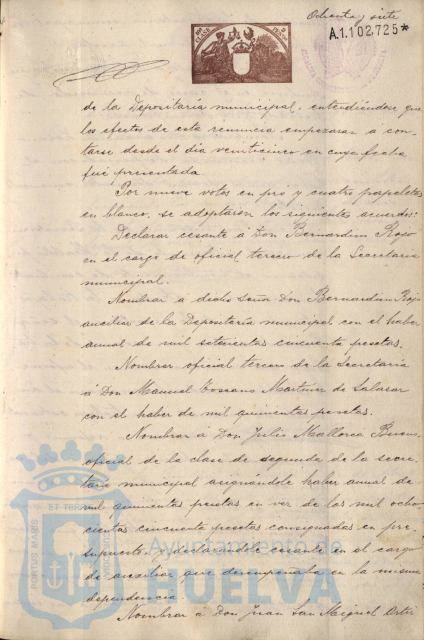 Ochenta y siete
A.1.102.725*
de la Depositaría municipal, entendiéndose que
los efectos de esta renuncia empezaran a con-
tarse desde el día veinticinco en cuya fecha
fué presentada
Por nueve votos en pró y cuatro papeletas
en blanco, se adoptaron los siguientes acuerdos:
Declarar cesante á Don Bernardino Rojo
en el cargo de oficial tercero de la Secretaria
municipal.
Nombrar á dicho Señor Don Bernardino Rojo
auxiliar de la Depositaría municipal con el haber
anual de mil setecientas cincuenta pesetas.
Nombrar oficial tercero de la Secretaría
á Don Manuel Toscano Martinez de Salazar
con el haber de mil quinientas pesetas.
Nombrar á Don Julio Mallorca
oficial de la clase de segunda de la secre-
taría municipal asignándole haber anual de
mil quinientas pesetas en vez de las mil ocho-
cientas cincuenta pesetas consignadas en pre-
supuesto, y declarándole cesante en el cargo
de auxiliar que desempeñaba en la misma
dependencia.
Nombrar á Don Juan San Miguel Ortiz
PORTUS MARIS ET TERRAE CUSTODIA
Ayuntamiento de
HUELVA